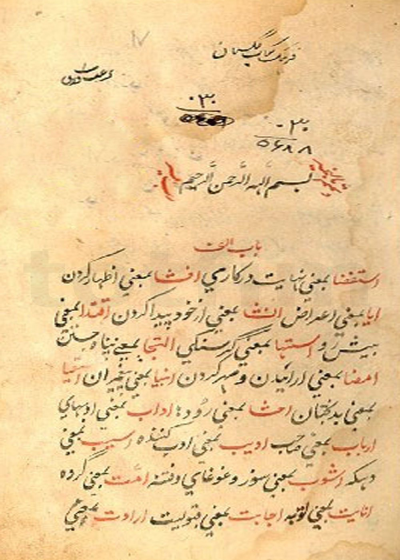 فرهنگ کتاب گلستان
۰۳۰
۰۳۰
۵۶۸۸
بسم الله الرحمن الرحیم
باب الف
استقصا بمعنی نهایت درکاری افشا بمعنی اظهار کردن
ابا بمعنی اعراض انشا بمعنی از خود پیدا کردن اقتدا بمعنی
و اشتها بمعنی گرسنگی التجا بمعنی پناه جستن
امضا بمعنی و مهر کردن انبیا بمعنی پیغمبران اشقیا
بمعنی بدبختان بمعنی رودها اداب بمعنی ادبهای
ارباب بمعنی صاحب ادیب بمعنی ادب کننده اسیب بمعنی
اشوب بمعنی سور و غوغای و فتنه امت بمعنی گرده
انابت بمعنی توبه اجابت بمعنی قبولیت ارادت بمعنی